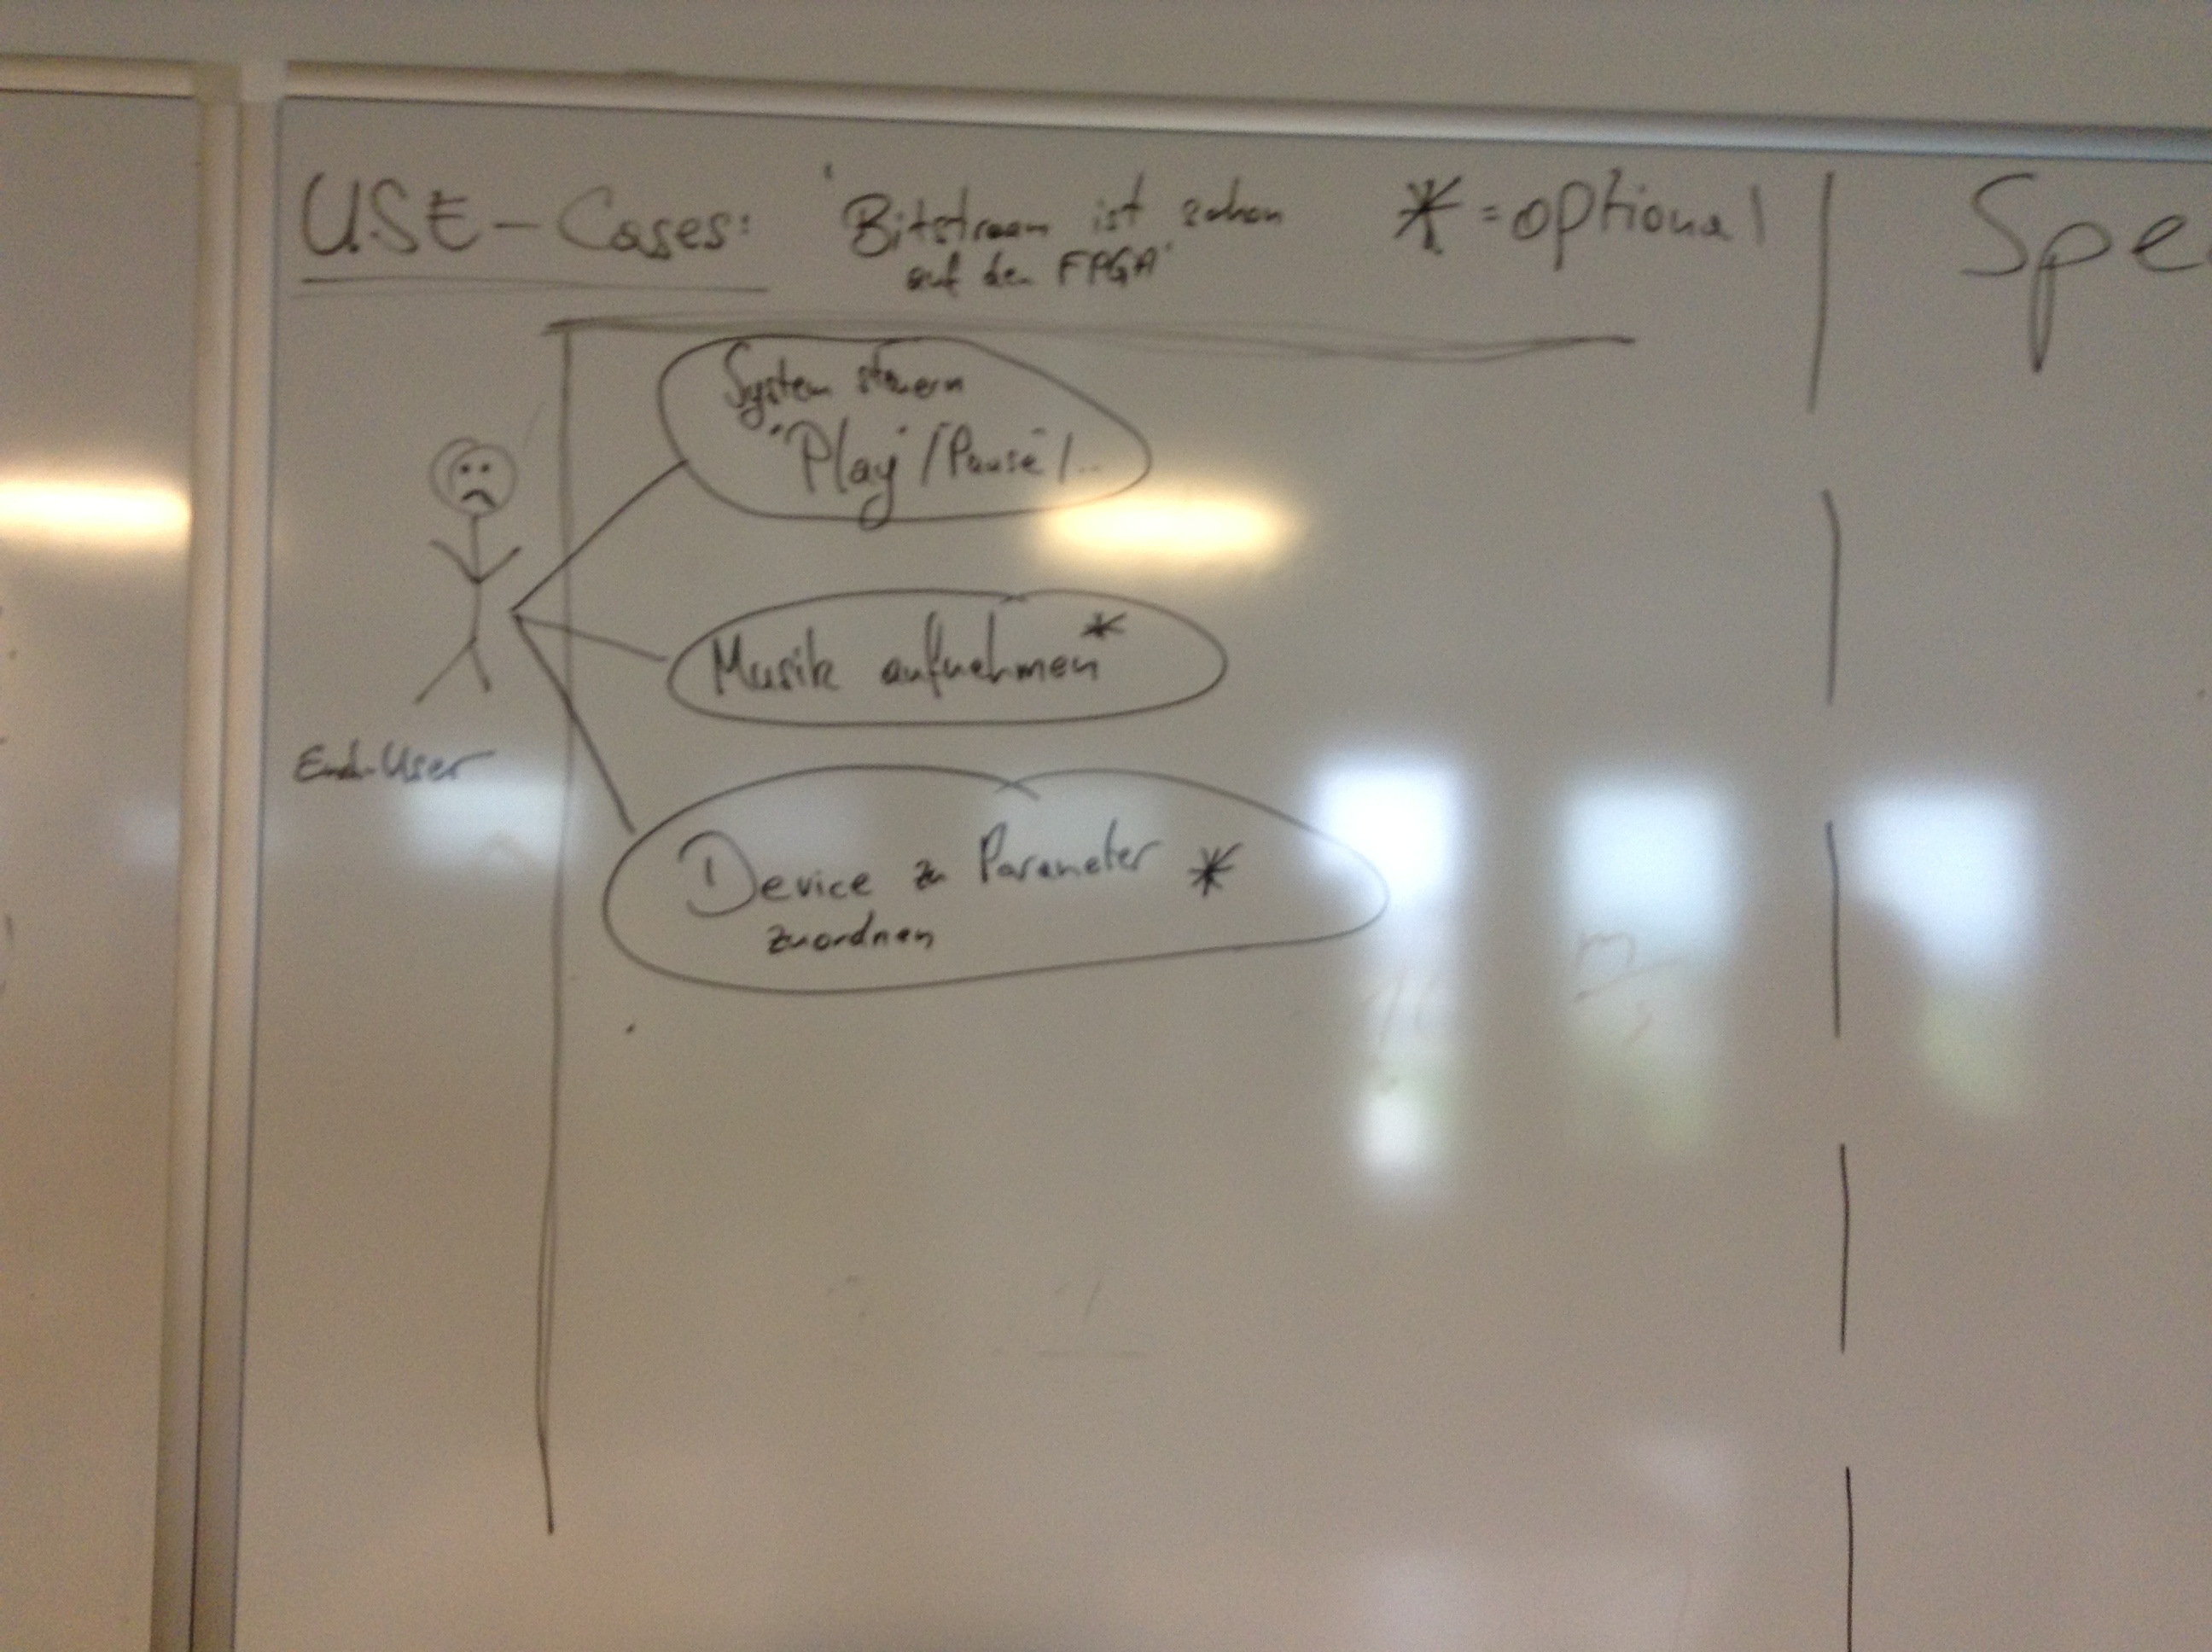 USE-Cases:
"Bitstream ist schon
auf den FPGA"
* = optional
Spe
System steuern
"Play"/"Pause"/...
Musik aufnehmen *
End-User
Device zu Parameter *
zuordnen